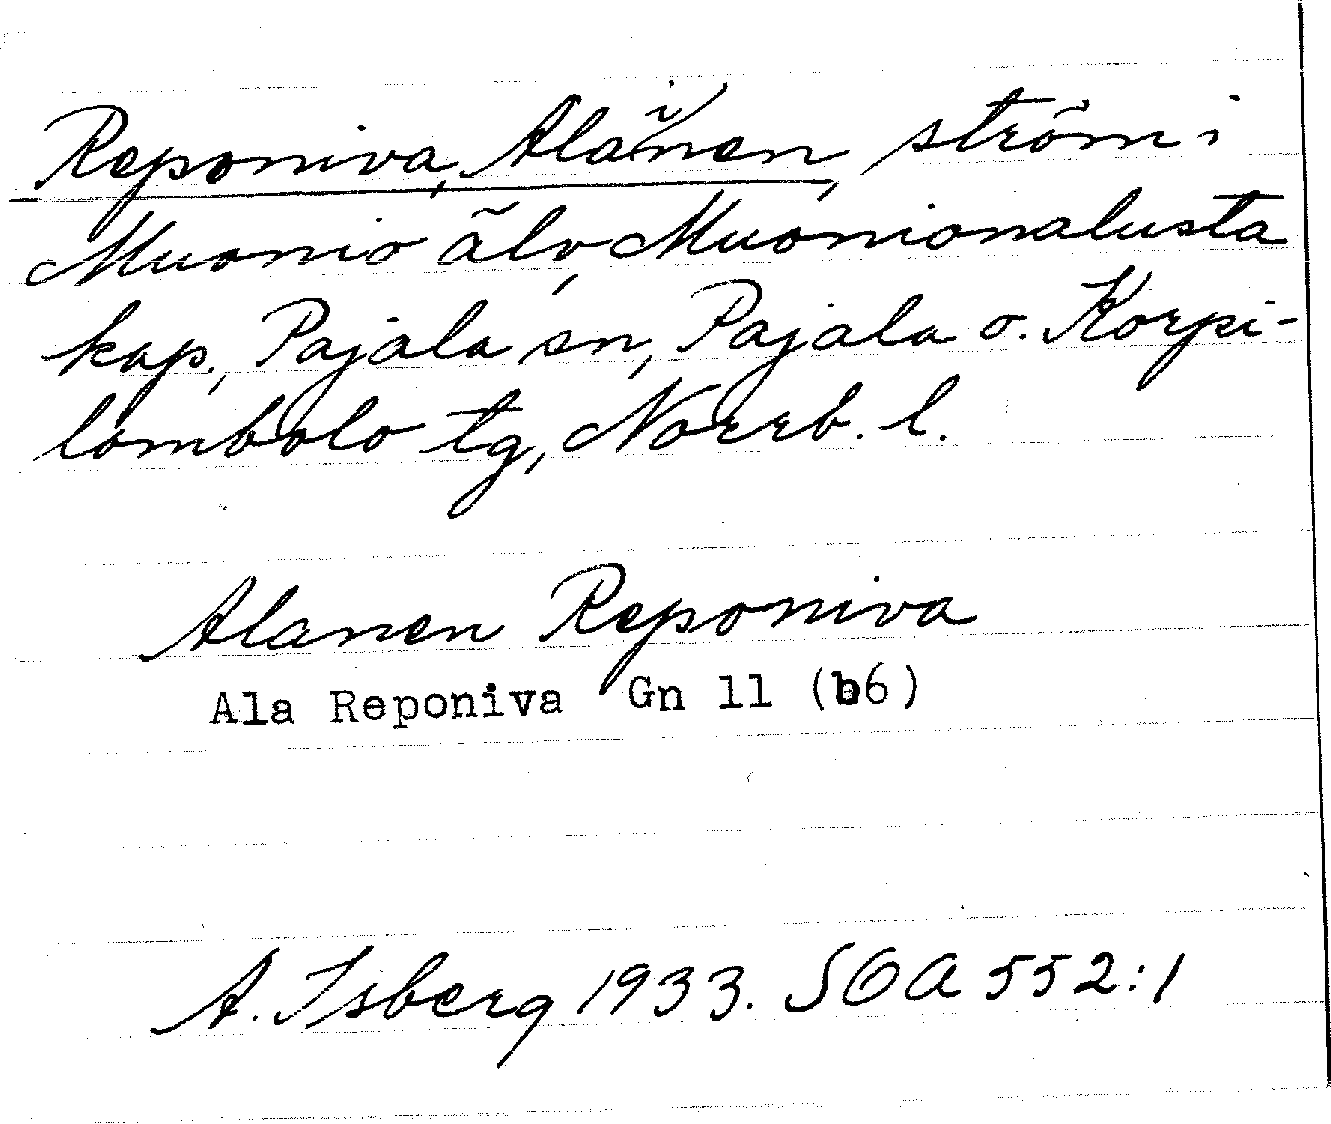 Reponiva, Alainen, ström i
Muonio älv, Muonionalusta
kap., Pajala sn, Pajala o. Korpi-
lombolo tg, Norrb. l.
Alanen Reponiva
Ala Reponiva Gn 11 (b6)
A. Isberg 1933. SOA 552:1